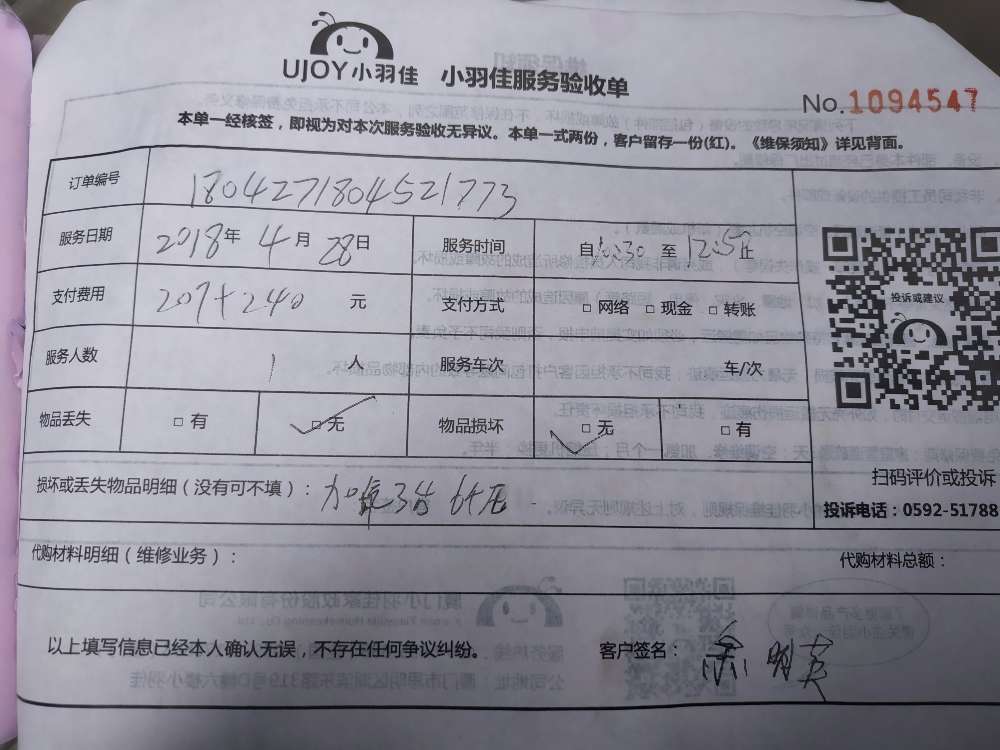 UJOY小羽佳 小羽佳服务验收单
No.1094547
本单一经核签，即视为对本次服务验收无异议。本单一式两份，客户留存一份(红)。《维保须知》详见背面。
订单编号 1804271804521773
服务日期 2018年4月28日 服务时间 自10:30至12:50止
支付费用 207+240 元 支付方式 □ 网络 □ 现金 □ 转账
投诉或建议
服务人数 1 人 服务车次 车/次
物品丢失 □ 有 □ 无 物品损坏 □ 无 □ 有
扫码评价或投诉
损坏或丢失物品明细（没有可不填）：加氟3台
投诉电话：0592-51788
代购材料明细（维修业务）： 代购材料总额：
以上填写信息已经本人确认无误，不存在任何争议纠纷。 客户签名： 明英